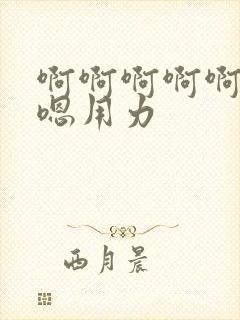 啊啊啊啊啊
嗯用力
西月晨